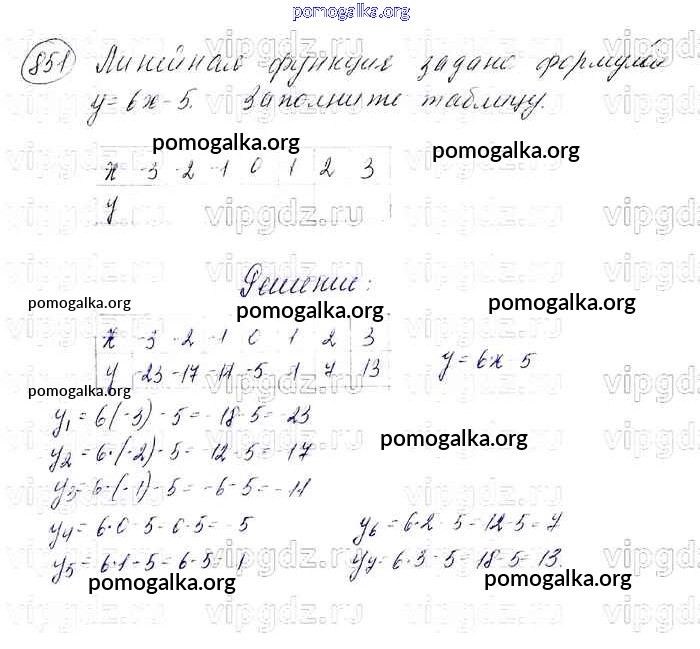 pomogalka.org
851 Линейная функция задана формулой
y = 6x - 5. Заполните таблицу.
pomogalka.org pomogalka.org
x -3 -2 -1 0 1 2 3
y
vipgdz.ru vipgdz.ru vipgdz.ru
Решение:
pomogalka.org pomogalka.org pomogalka.org
x -3 -2 -1 0 1 2 3
y -23 -17 -11 -5 1 7 13 y = 6x 5
pomogalka.org
y1 = 6(-3) - 5 = -18-5 = -23
y2 = 6·(-2) - 5 = -12-5 = -17
pomogalka.org
y3 = 6·(-1) - 5 = -6-5 = -11
y4 = 6·0 5 = 0-5 = -5 y6 = 6·2 5 = 12-5 = 7
y5 = 6·1-5 = 6-5 = 1 y7 = 6·3-5 = 18-5 = 13.
pomogalka.org pomogalka.org